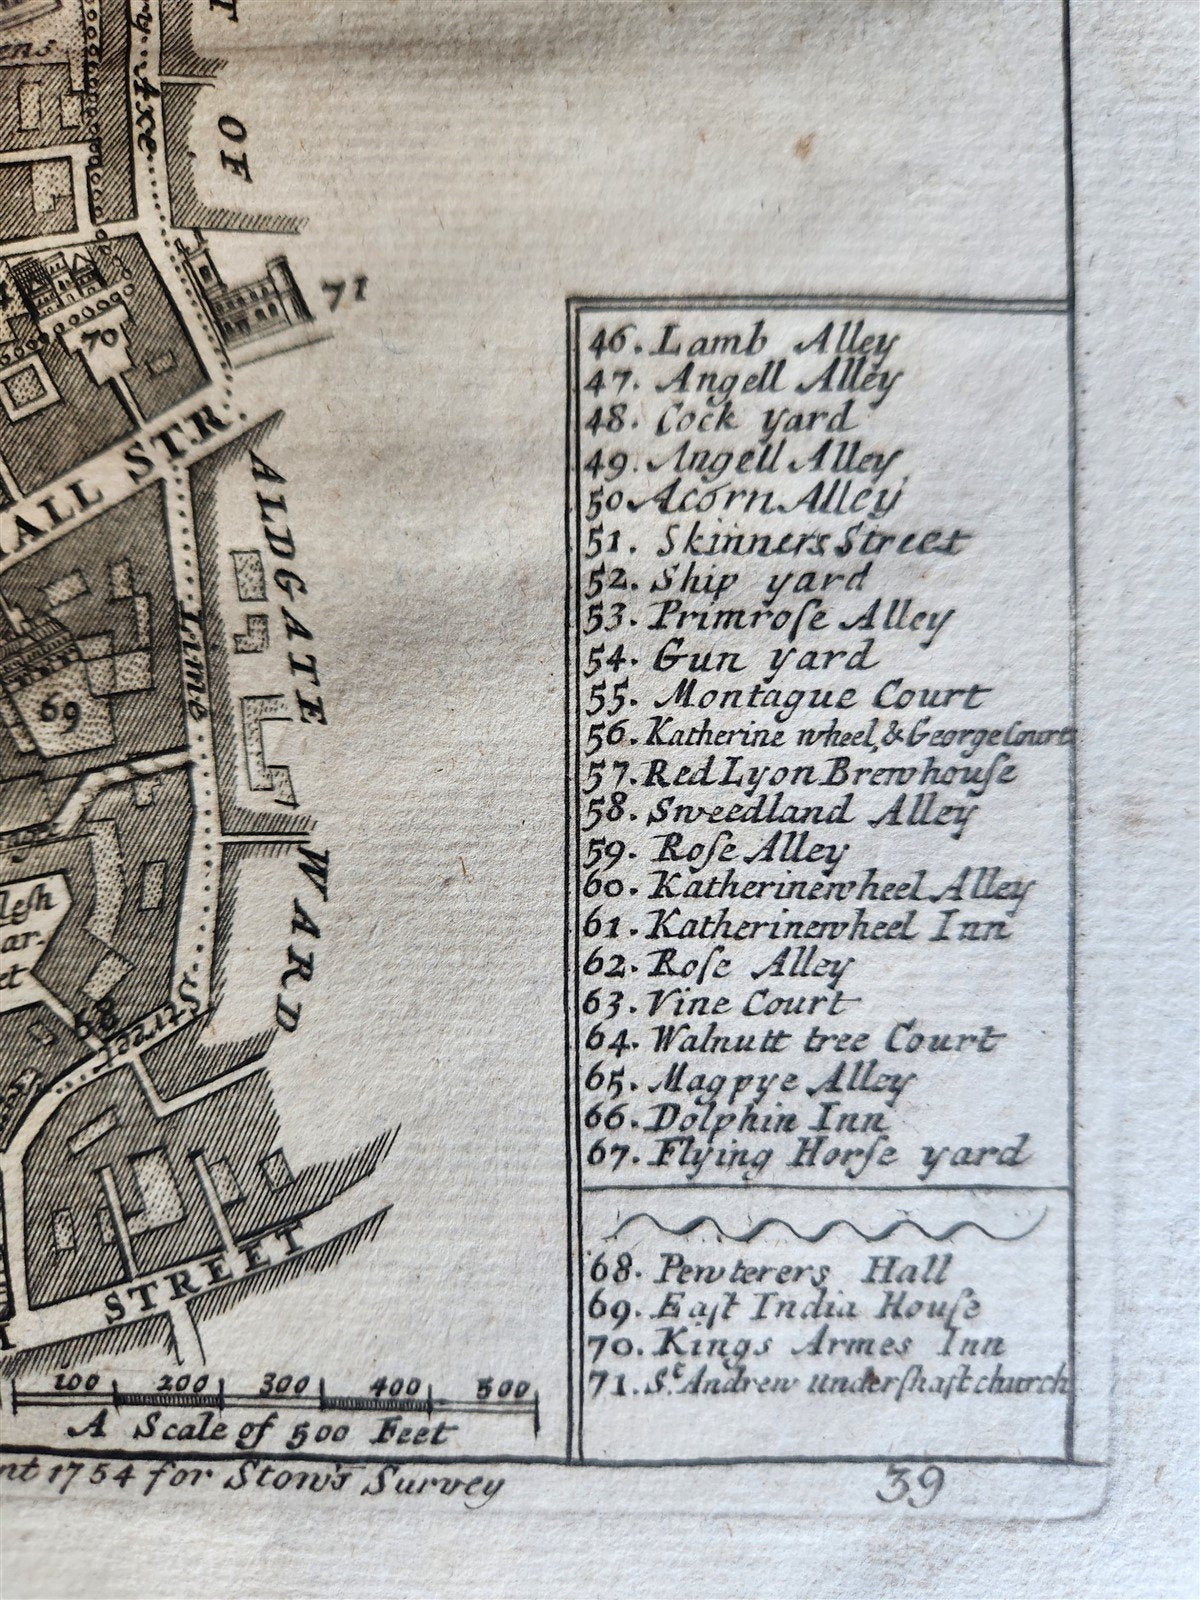 ry Axe
OF
71
70
ALL STR
ALDGATE
WARD
Lime
69
lesh
ar-
et
68
Street
STREET
100 200 300 400 500
A Scale of 500 Feet
nt 1754 for Stow's Survey
39
46. Lamb Alley
47. Angell Alley
48. Cock yard
49. Angell Alley
50 Acorn Alley
51. Skinners Street
52. Ship yard
53. Primroſe Alley
54. Gun yard
55. Montague Court
56. Katherine wheel, & George Court
57. Red Lyon Brewhouſe
58. Sweedland Alley
59. Roſe Alley
60. Katherinewheel Alley
61. Katherinewheel Inn
62. Roſe Alley
63. Vine Court
64. Walnutt tree Court
65. Magpye Alley
66. Dolphin Inn
67. Flying Horſe yard
68. Pewterers Hall
69. Eaſt India Houſe
70. Kings Armes Inn
71. St. Andrew underſhaft church